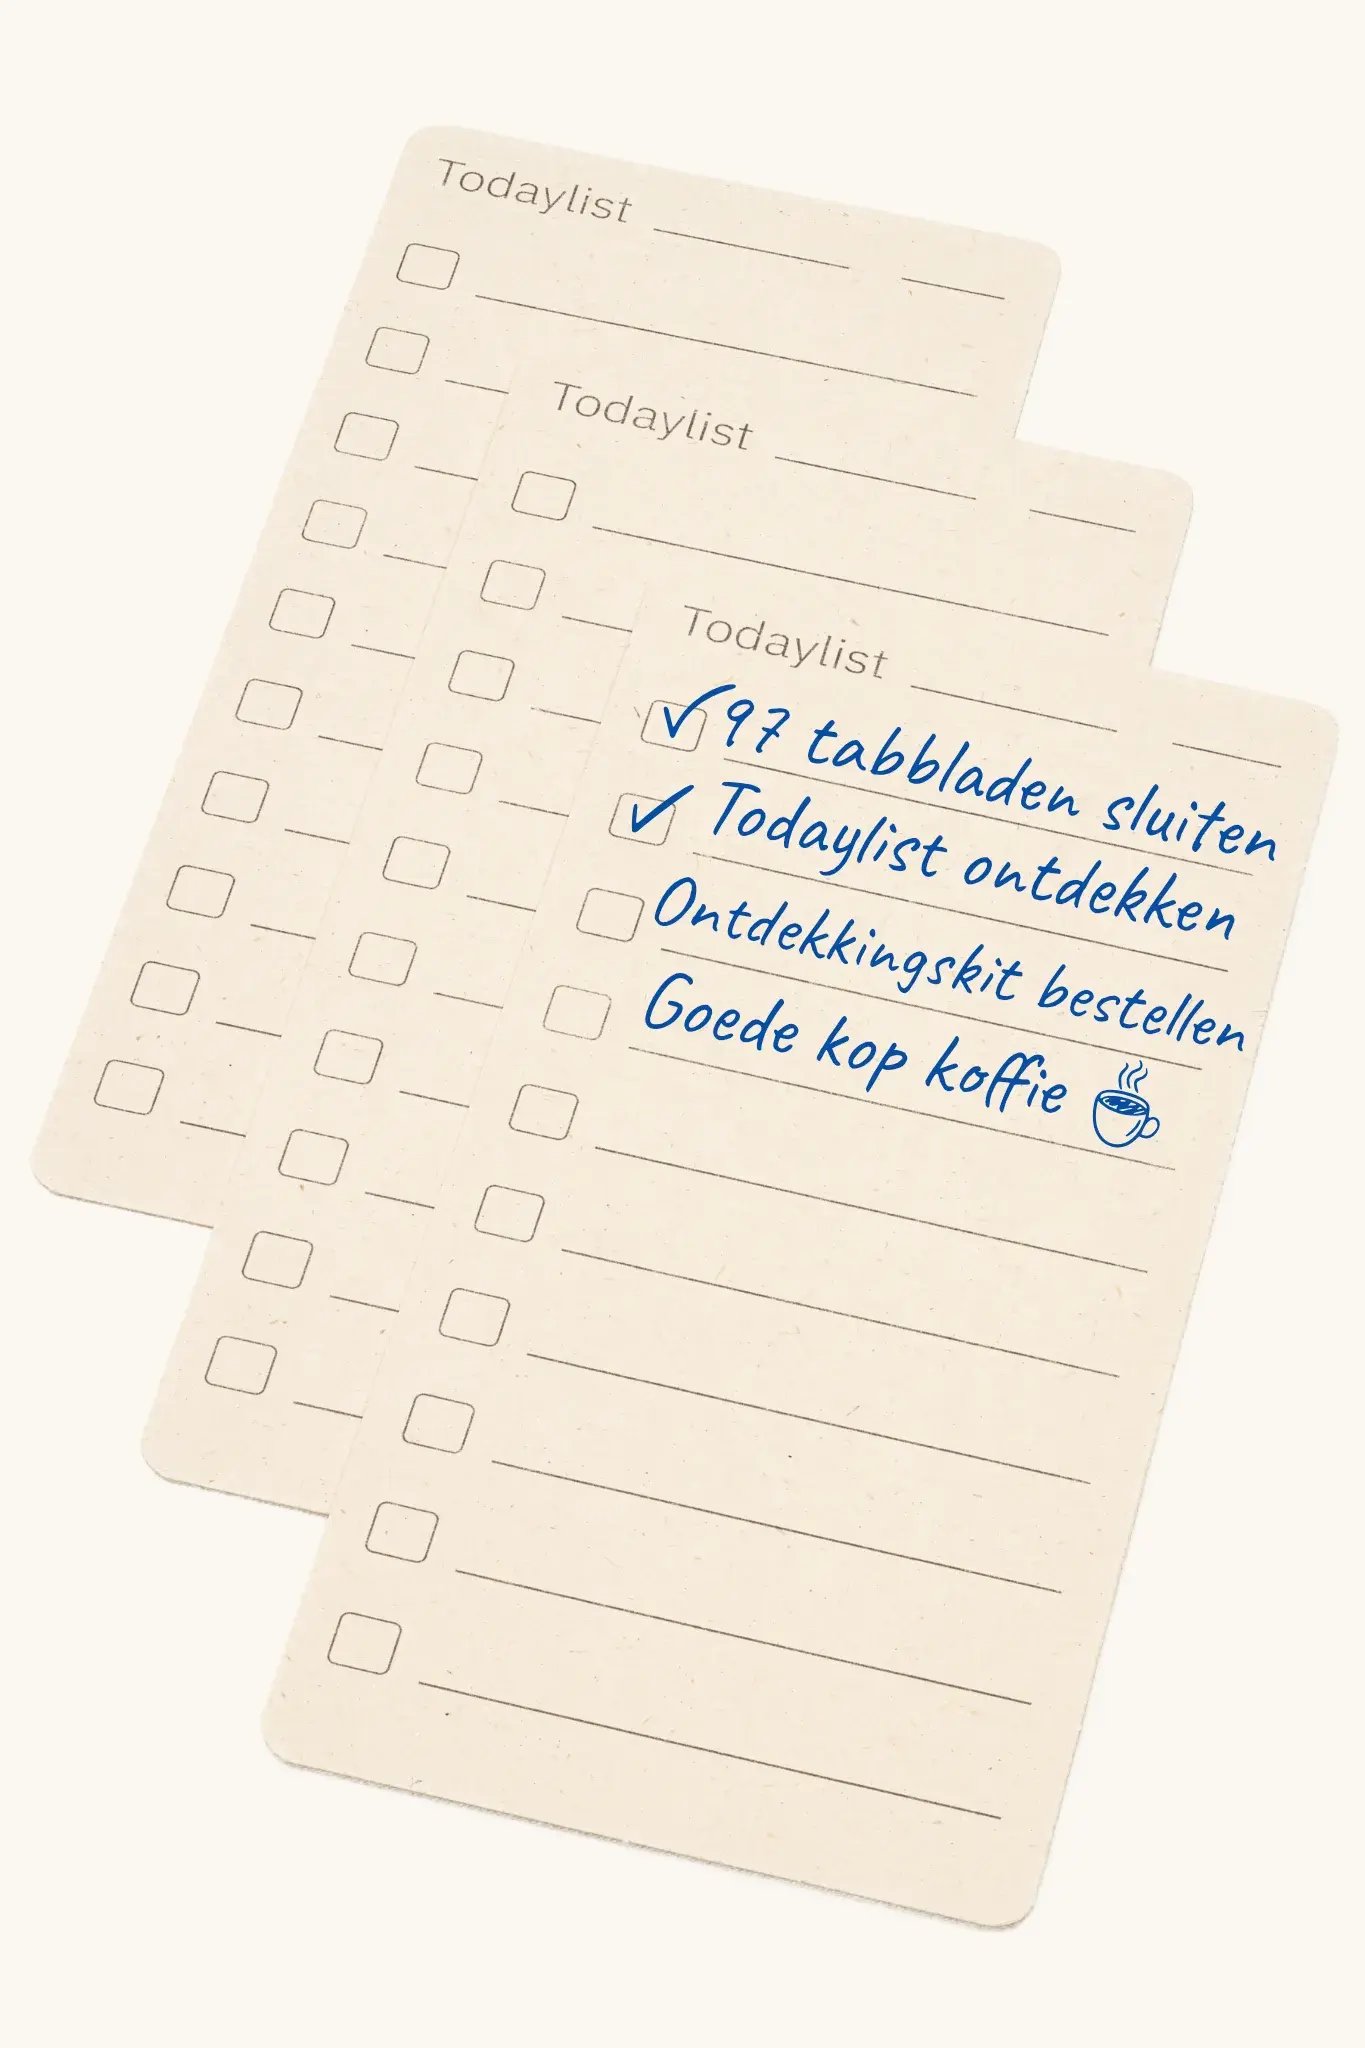 Todaylist
Todaylist
Todaylist
97 tabbladen sluiten
Todaylist ontdekken
Ontdekkingskit bestellen
Goede kop koffie